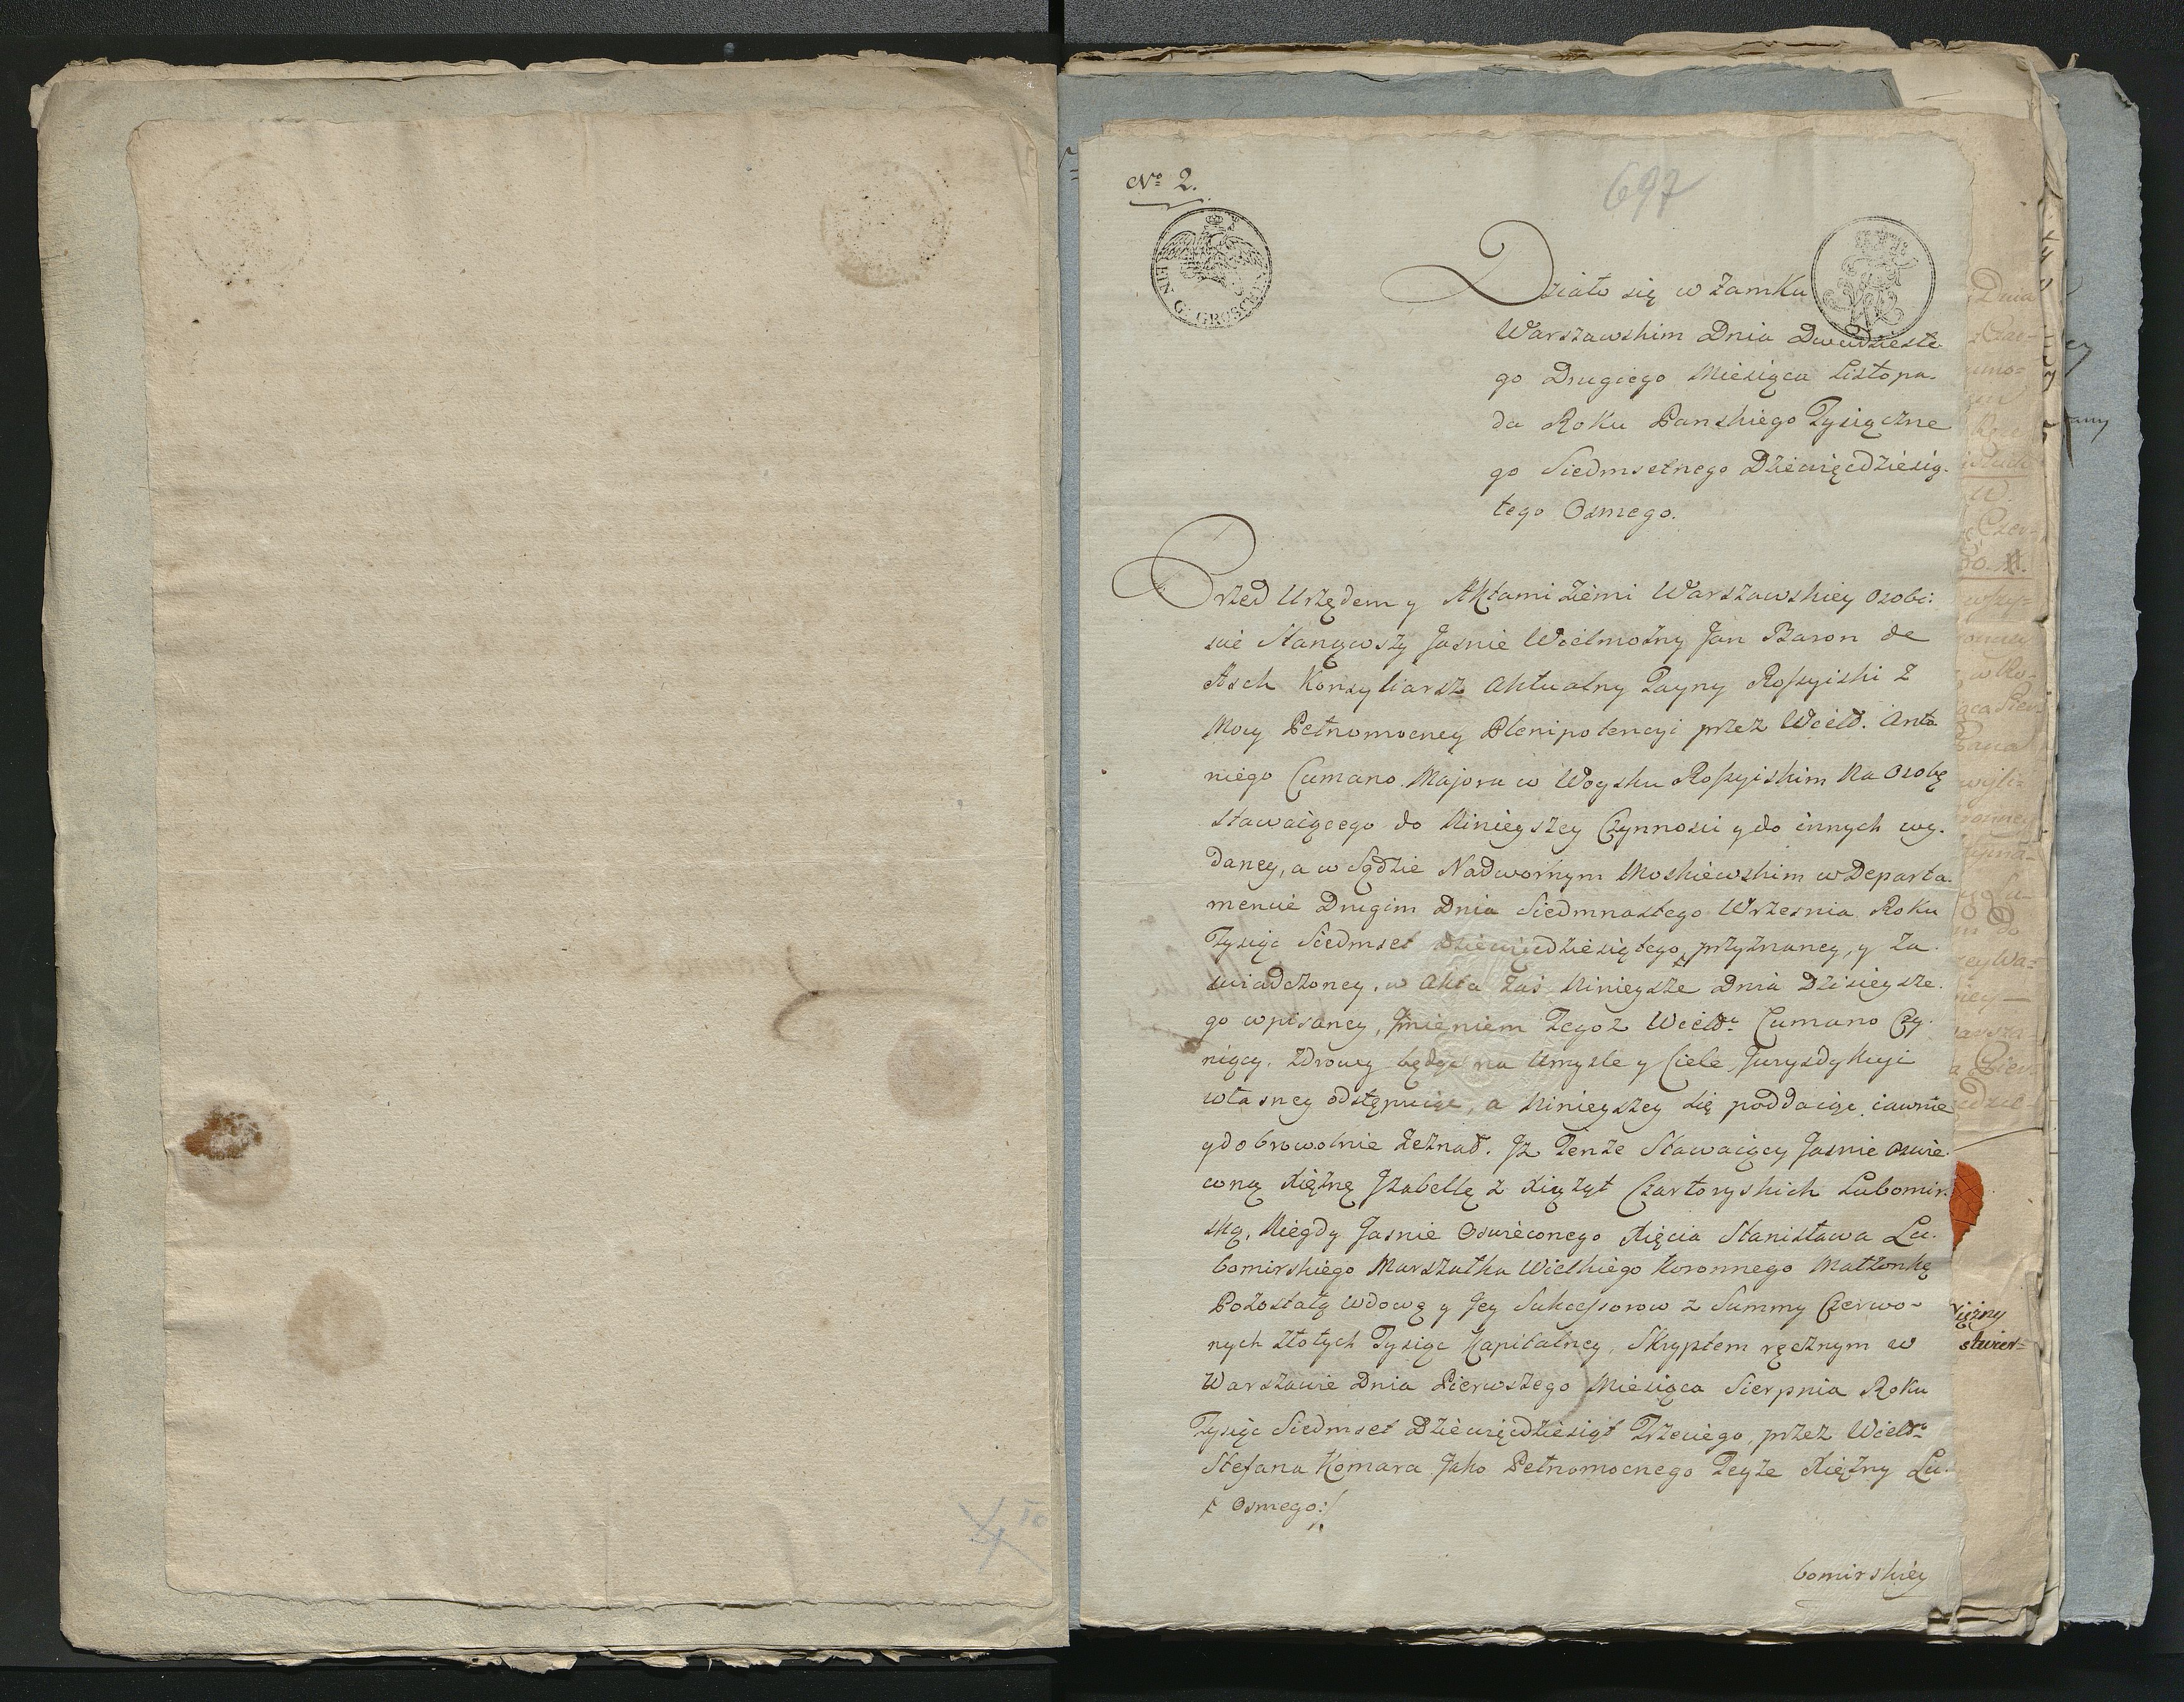 No 2.
697
EIN G. GROSCHEN
Działo się w Zamku
Warszawskim Dnia Dwudzieste
go Drugiego Miesiąca Listopa.
da Roku Panskiego Tysiączne
go Siedmsetnego Dziewięćdziesią.
tego Osmego.
Przed Urzędem y Aktami Ziemi Warszawskiey Osobi:
scie Stanąwszy Jasnie Wielmożny Jan Baron de
Asch Konsyliarz Aktualny Tayny Rossyiski z
Mocy Pełnomocney Plenipotencyi przez Wielo. Anto
niego Cumano Majora w Woysku Rossyiskim Na Osobę
Stawaiącego do Ninieyszey Czynnosci y do innych wy.
daney, a w Sądzie Nadwornym Moskiewskim w Departa.
mencie Drugim Dnia Siedmnastego Wrzesnia Roku
Tysiąc Siedmset Dziewięćdziesiątego, przyznaney, y Za.
swiadczoney, w Akta Zaś Ninieysze Dnia Dzisieysze.
go wpisaney, Jmieniem Tegoż Wielo. Cumano Czy.
niący. Zdrowy będąc na Umysle y Ciele Jurysdykcyi
własney odstępuiąc, a Ninieyszey się poddaiąc iawnie
y dobrowolnie Zeznał. Jż Tenże Stawaiący Jasnie Oswie.
coną Xiężnę Jzabellę z Xiążąt Czartoryskich Lubomir.
ską, Niegdy Jasnie Oswieconego Xięcia Stanisława Lu.
bomirskiego Marszałka Wielkiego Koronnego Małżonkę
Pozostałą Wdowę y Jey Sukcessorow z Summy Czerwo.
nych Złotych Tysiąc Kapitalney, Skryptem ręcznym w
Warszawie Dnia Pierwszego Miesiąca Sierpnia Roku
Tysiąc Siedmset Dziewięćdziesiąt Trzeciego, przez Wielo.
Stefana Komara Jako Pełnomocnego Teyże Xiężny Lu.
Osmego:/
bomirskiey